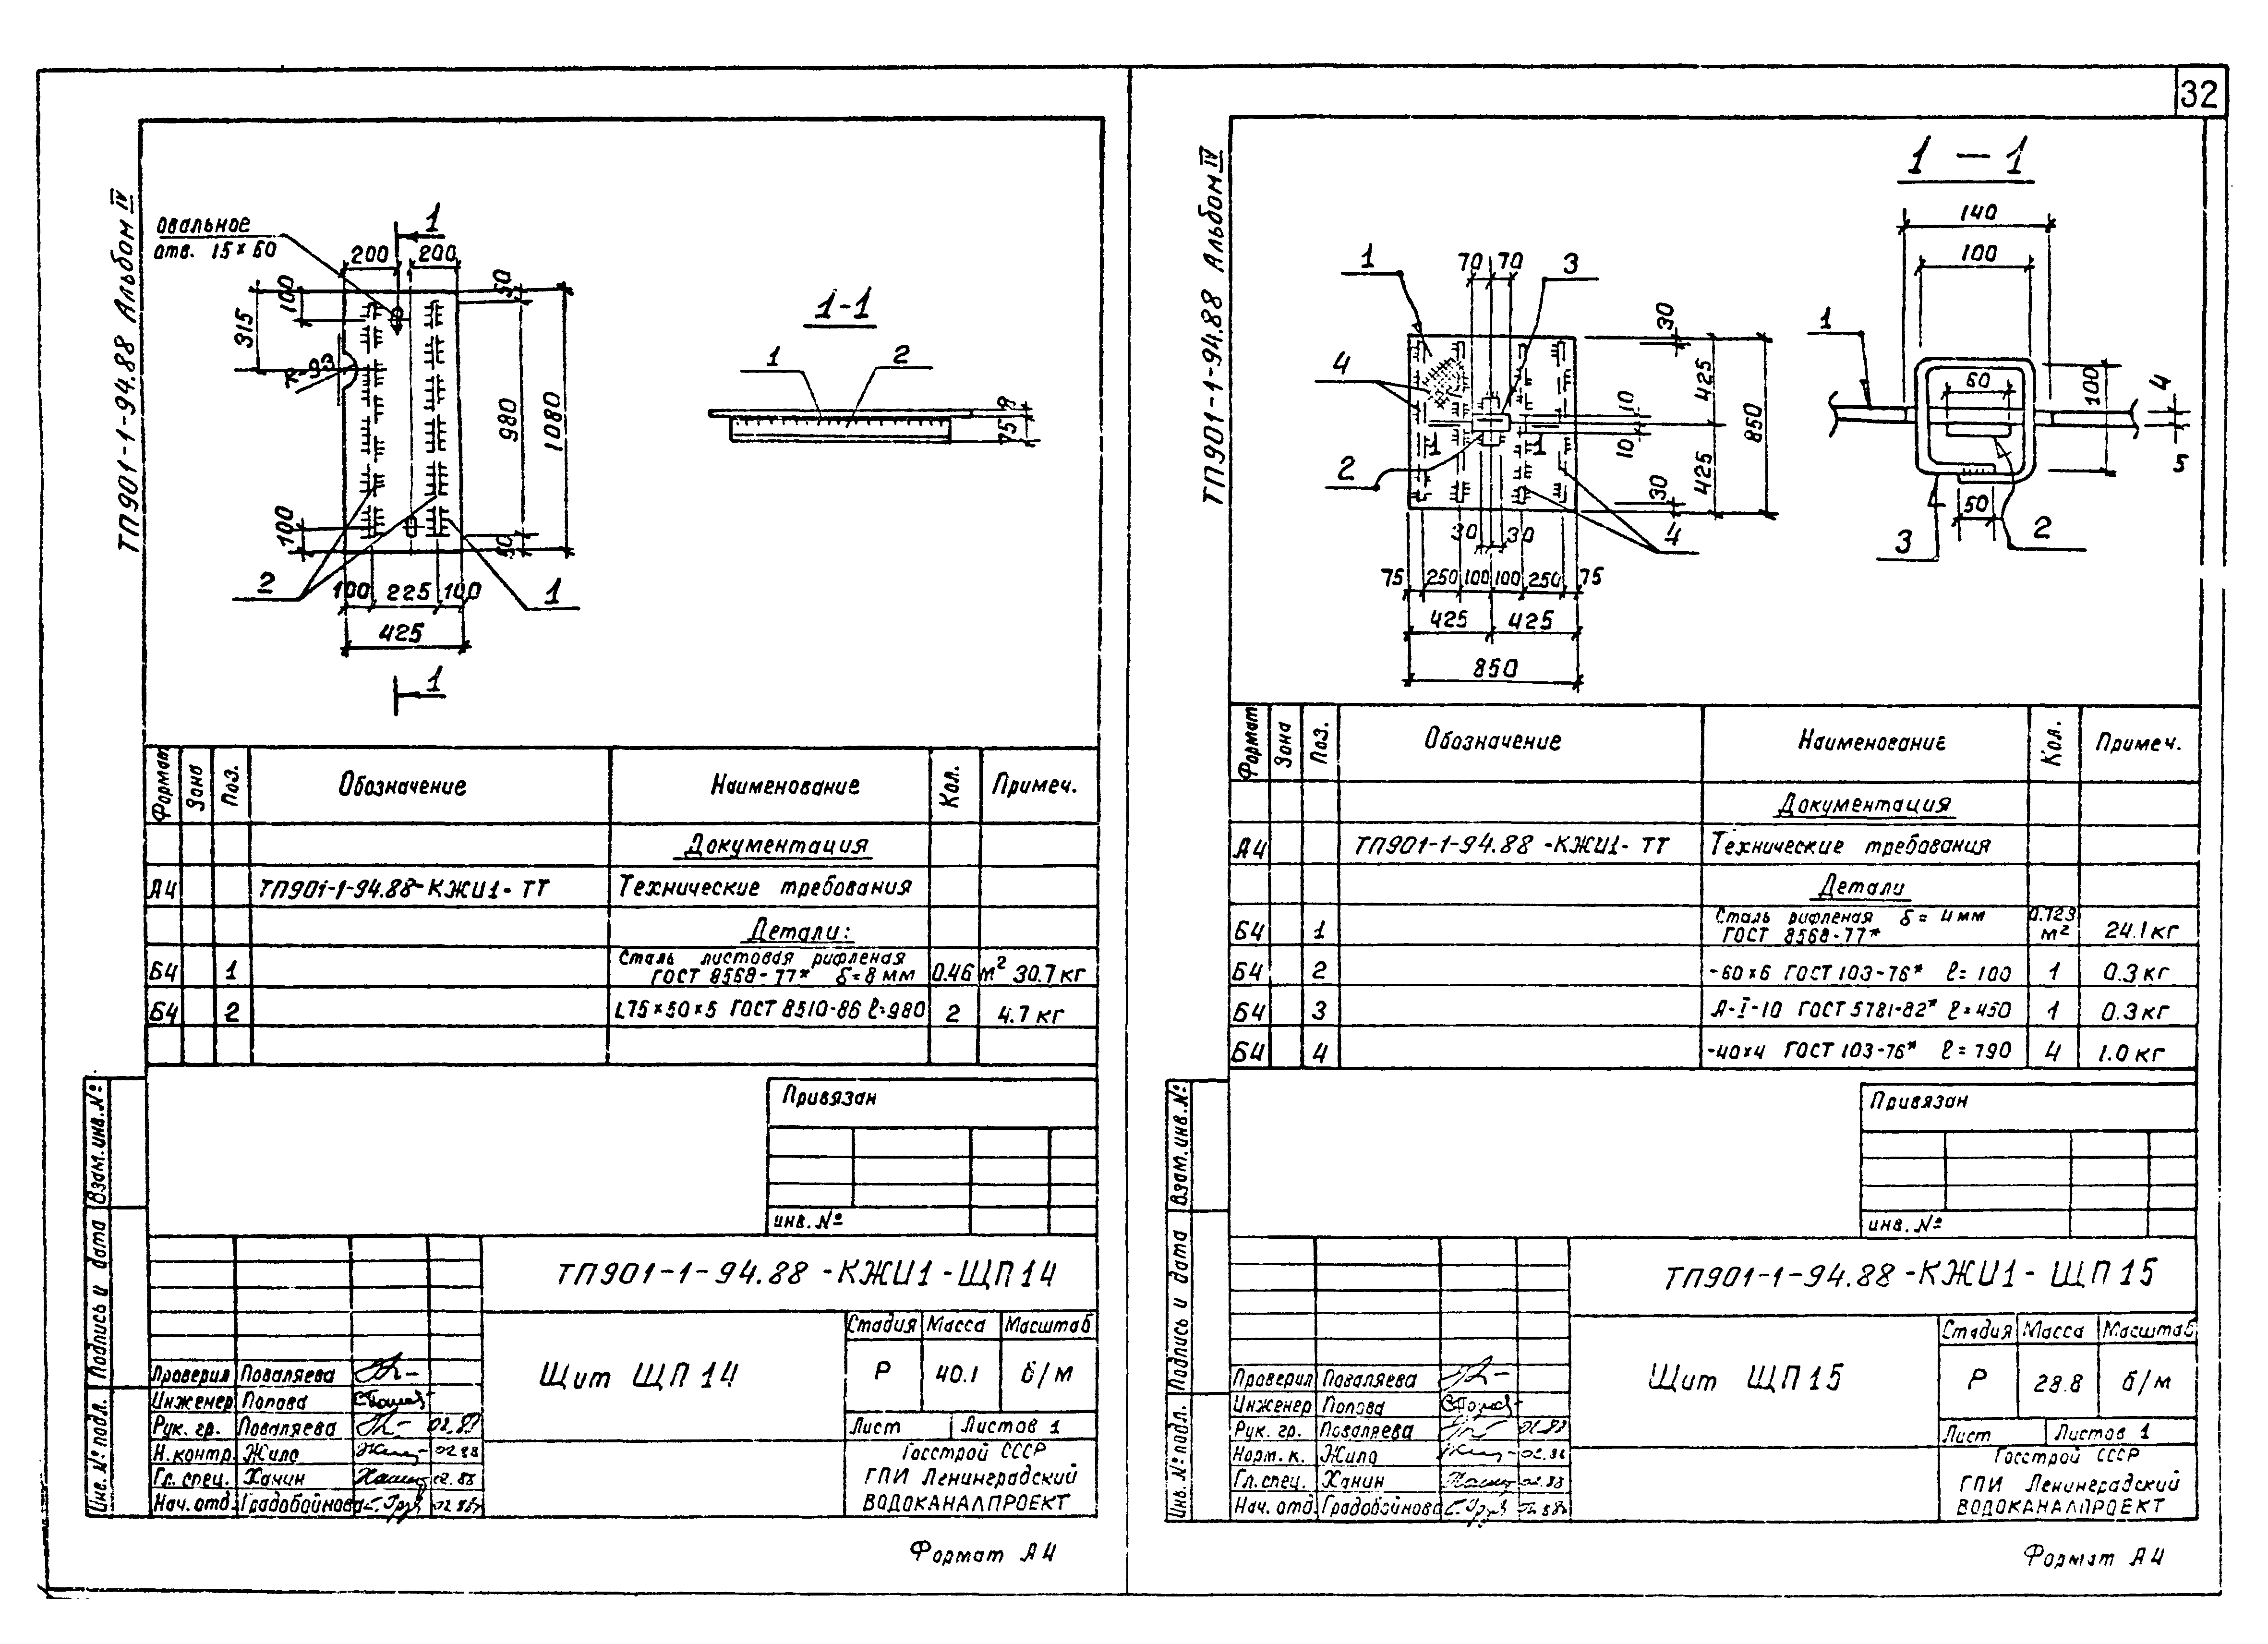 32
ТП901-1-94.88 Альбом IV
овальное
отв. 15×60
1
200 200
100
315
50
R=93
980
1080
100
50
2
1
100 225 100
425
1
1-1
1 2
8
75
Формат Зона Поз. Обозначение Наименование Кол. Примеч.
Документация
А4 ТП901-1-94.88-КЖИ1-ТТ Технические требования
Детали:
Сталь листовая рифленая
Б4 1 ГОСТ 8568-77* δ=8 мм 0.46 м² 30.7 кг
Б4 2 L75×50×5 ГОСТ 8510-86 ℓ=980 2 4.7 кг
Привязан
инв. №
Взам.инв.№
Подпись и дата
Инв.№подл.
ТП901-1-94.88-КЖИ1-ЩП14
Стадия Масса Масштаб
Щит ЩП14
Р 40.1 б/м
Лист Листов 1
Проверил Поваляева
Инженер Попова
Рук. гр. Поваляева 02.88
Н.контр. Жило 02.88
Гл. спец. Ханин 02.88
Нач. отд. Градобойнова 02.88
Госстрой СССР
ГПИ Ленинградский
ВОДОКАНАЛПРОЕКТ
Формат А4
ТП901-1-94.88 Альбом IV
1
70 70
3
4
2
1 1
30
425
10
10
425
30
850
30 30
4
75 250 100 100 250 75
425 425
850
1-1
140
100
1
60
100
4
5
50
3
2
Формат Зона Поз. Обозначение Наименование Кол. Примеч.
Документация
А4 ТП901-1-94.88-КЖИ1-ТТ Технические требования
Детали
Б4 1 Сталь рифленая δ=4мм ГОСТ 8568-77* 0.723 м² 24.1кг
Б4 2 -60×6 ГОСТ 103-76* ℓ=100 1 0.3кг
Б4 3 А-I-10 ГОСТ 5781-82* ℓ=450 1 0.3кг
Б4 4 -40×4 ГОСТ 103-76* ℓ=790 4 1.0кг
Привязан
инв. №
Взам.инв.№
Подпись и дата
Инв.№подл.
ТП901-1-94.88-КЖИ1-ЩП15
Стадия Масса Масштаб
Щит ЩП15
Р 28.8 б/м
Лист Листов 1
Проверил Поваляева
Инженер Попова
Рук. гр. Поваляева 02.88
Норм. к. Жило 02.88
Гл.спец. Ханин 02.88
Нач. отд. Градобойнова 02.88
Госстрой СССР
ГПИ Ленинградский
ВОДОКАНАЛПРОЕКТ
Формат А4